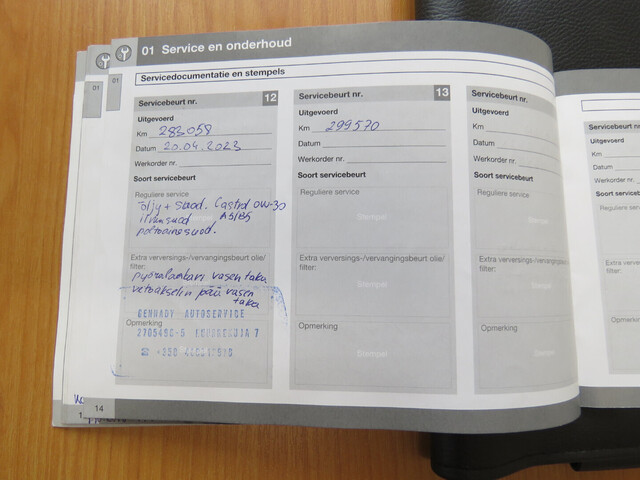 01 Service en onderhoud
Servicedocumentatie en stempels
01
01
Servicebeurt nr. 12
Uitgevoerd
Km 283058
Datum 20.04.2023
Werkorder nr.
Soort servicebeurt
Reguliere service
Stempel
öljy + suod. Castrol 0W-30
A5/B5
suod.
Extra verversings-/vervangingsbeurt olie/
filter:
pyöränlaakeri vasen taka
vetoakselin pää vasen
taka
GENNADY AUTOSERVICE
Opmerking
14
Servicebeurt nr. 13
Uitgevoerd
Km 299570
Datum
Werkorder nr.
Soort servicebeurt
Reguliere service
Stempel
Extra verversings-/vervangingsbeurt olie/
filter:
Stempel
Opmerking
Stempel
Servicebeurt nr.
Uitgevoerd
Km
Datum
Werkorder nr.
Soort servicebeurt
Reguliere service
Extra verversings-/vervangingsbeurt
filter:
Opmerking
Servicebeurt nr.
Uitgevoerd
Km
Datum
Werkorder nr.